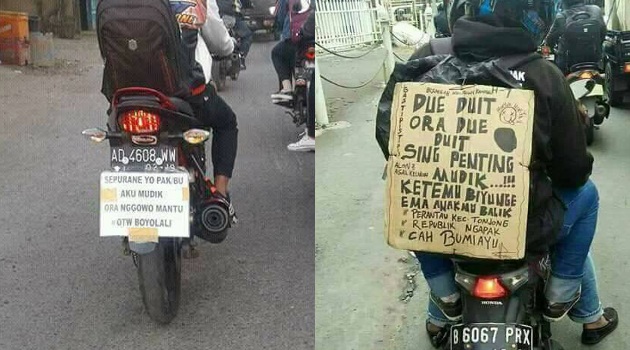 AD 4608 WW
SEPURANE YO PAK/BU
AKU MUDIK
ORA NGGOWO MANTU
#OTW BOYOLALI
DUE DUIT
ORA DUE
DUIT
SING PENTING
MUDIK...!!!
KETEMU BIYUNGE
EMA ANAKMU BALIK
# PERANTAU KEC. TONJONG
# REPUBLIK NGAPAK
# CAH BUMIAYU
HONDA
B 6067 PRX